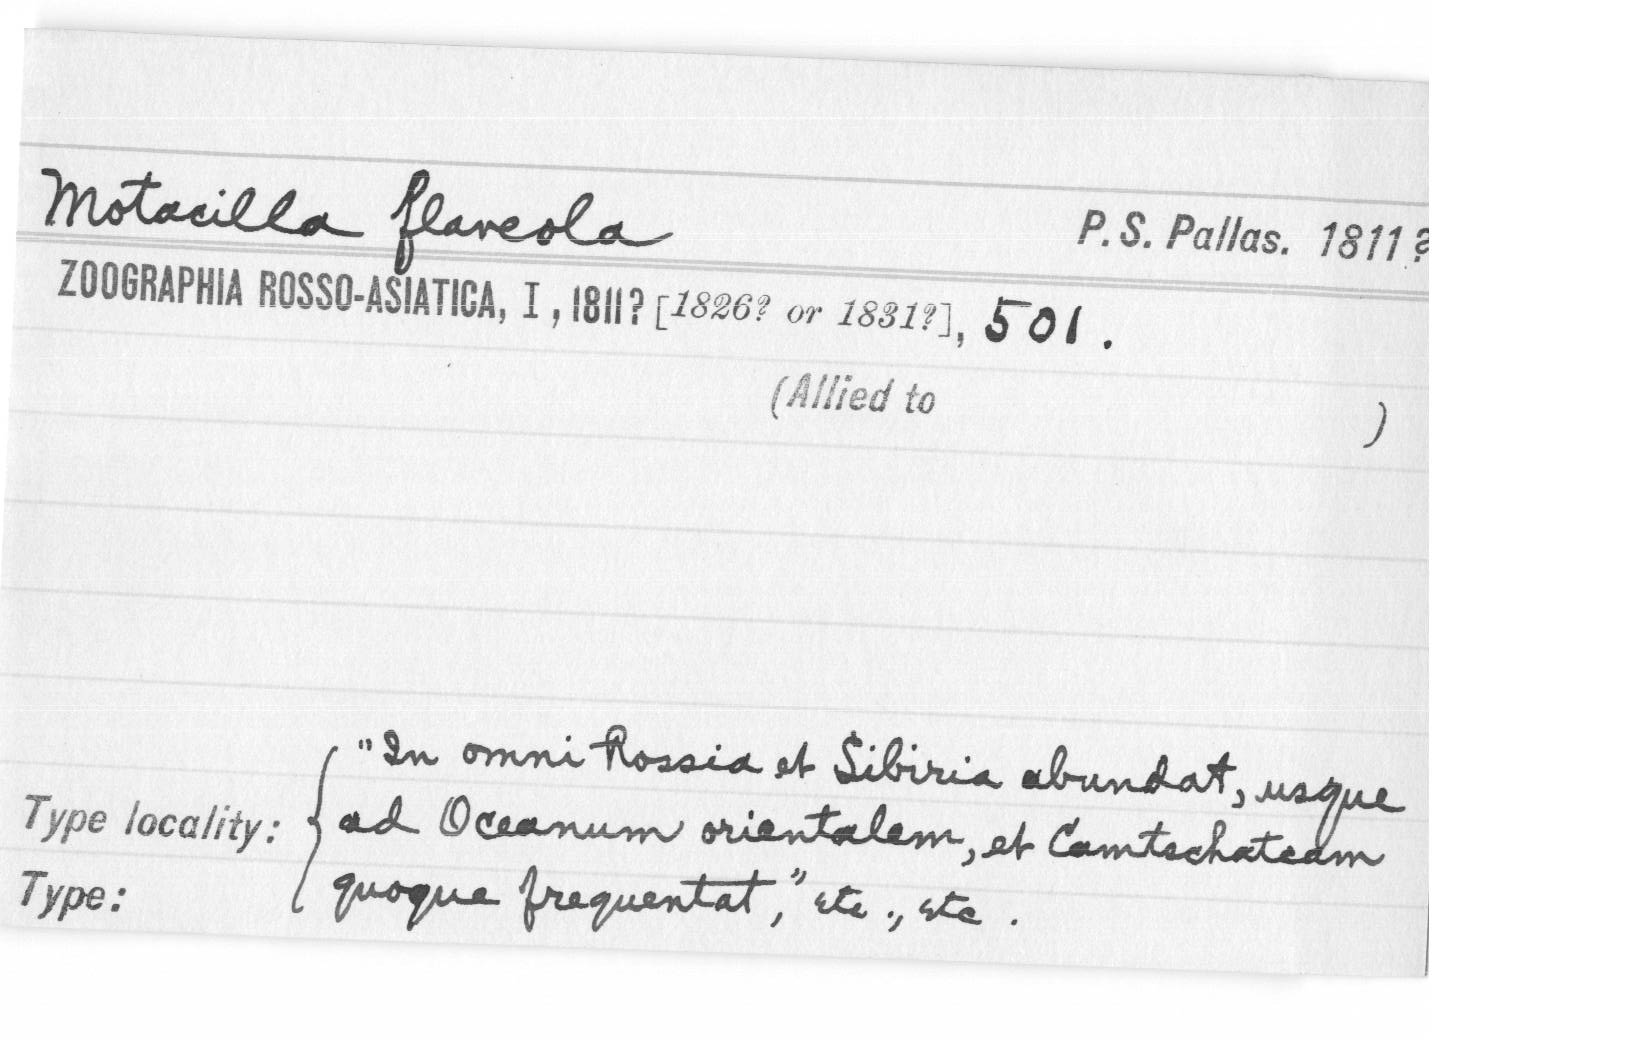 Motacilla flaveola
P. S. Pallas. 1811?
ZOOGRAPHIA ROSSO-ASIATICA, I, 1811? [1826? or 1831?], 501.
(Allied to )
"In omni Rossia et Sibiria abundat, usque
Type locality: ad Oceanum orientalem, et Camtschatcam
Type: quoque frequentat," etc., etc.